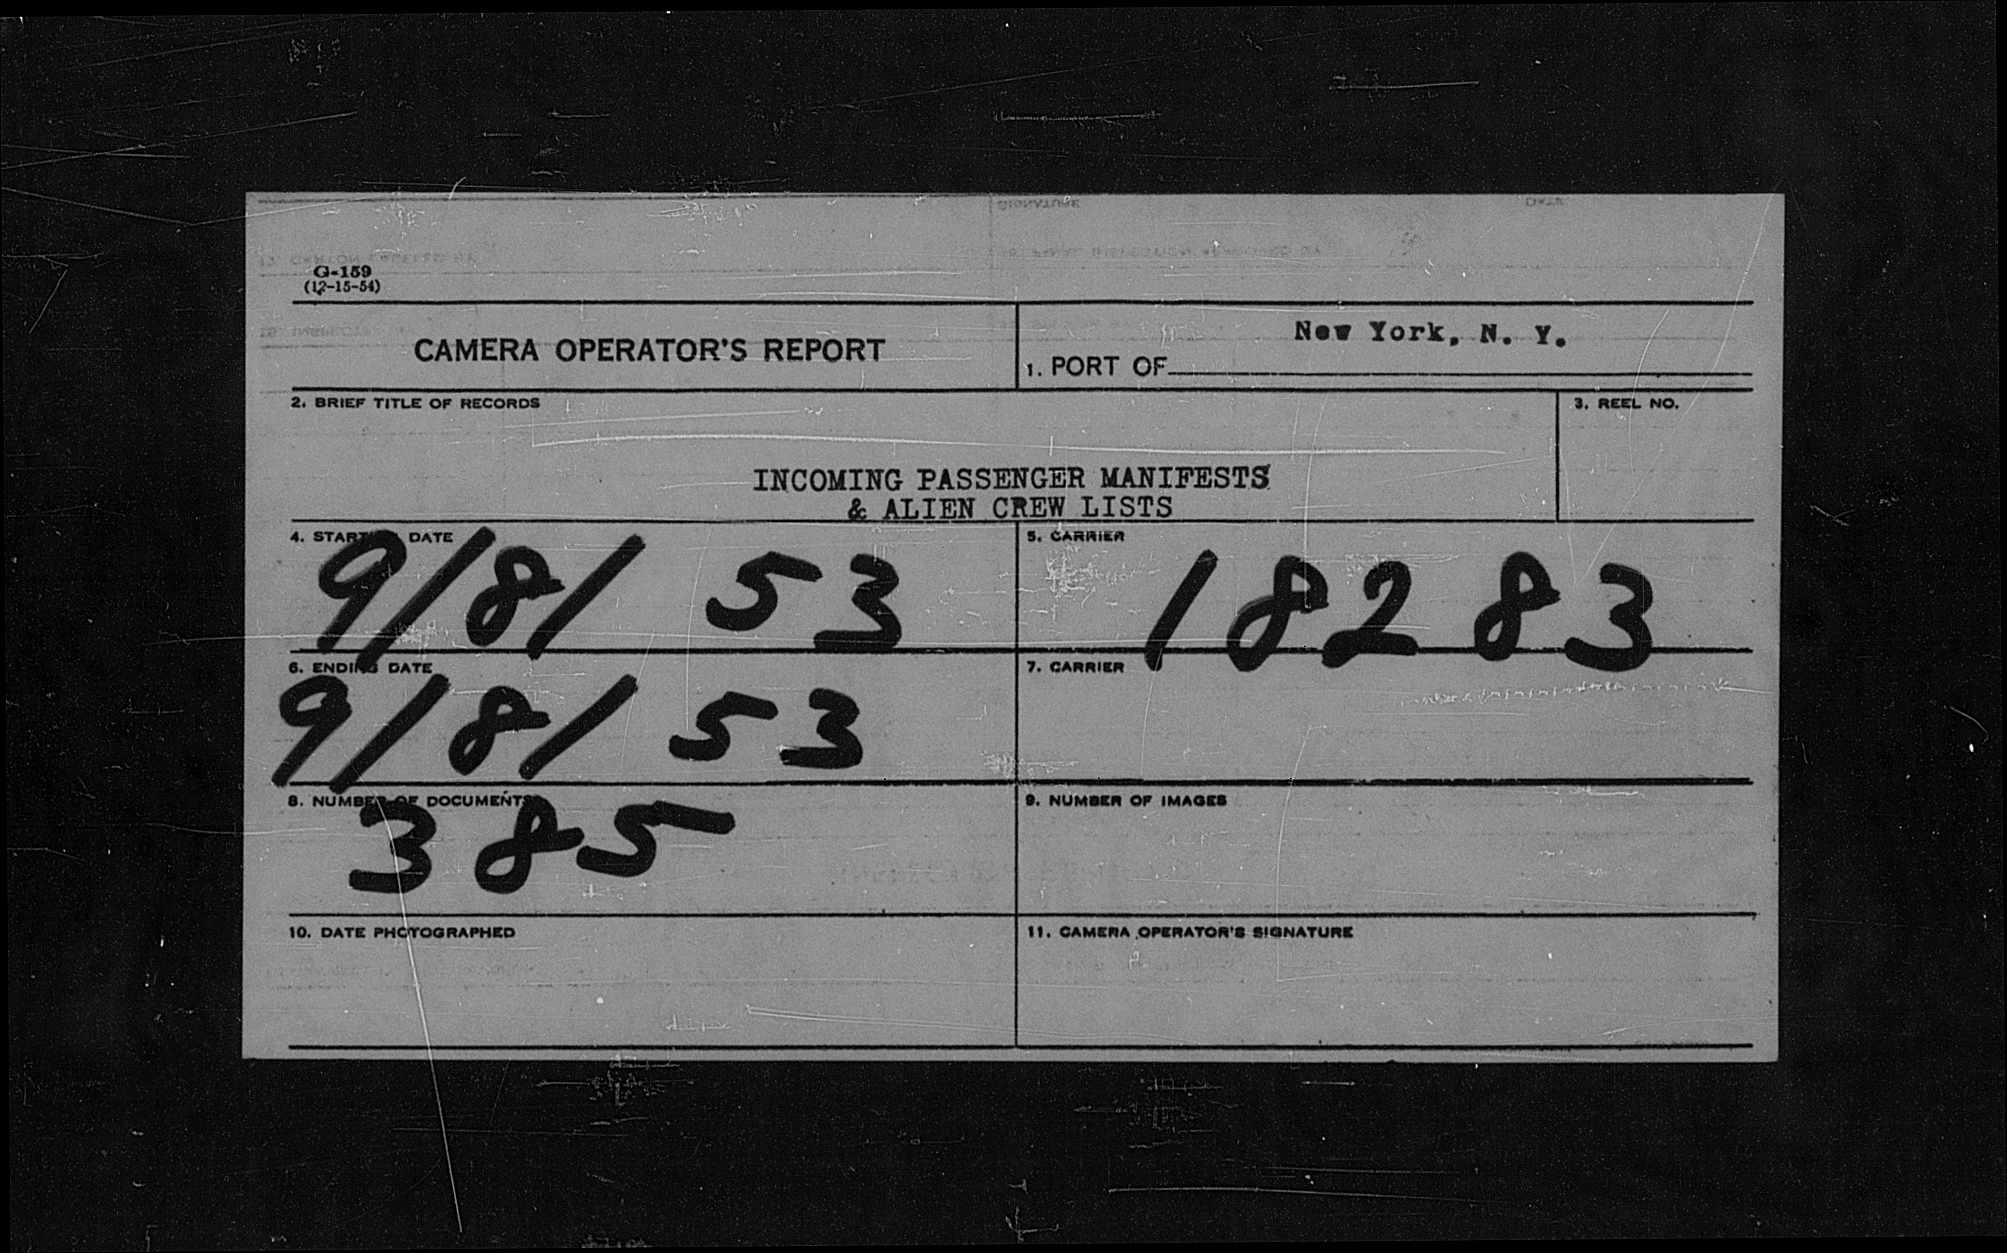 G-159
(12-15-54)
CAMERA OPERATOR'S REPORT
New York, N. Y.
1. PORT OF
2. BRIEF TITLE OF RECORDS
3. REEL NO.
INCOMING PASSENGER MANIFESTS
& ALIEN CREW LISTS
4. STARTING DATE
9/8/53
5. CARRIER
18283
6. ENDING DATE
9/8/53
7. CARRIER
8. NUMBER OF DOCUMENTS
385
9. NUMBER OF IMAGES
10. DATE PHOTOGRAPHED
11. CAMERA OPERATOR'S SIGNATURE